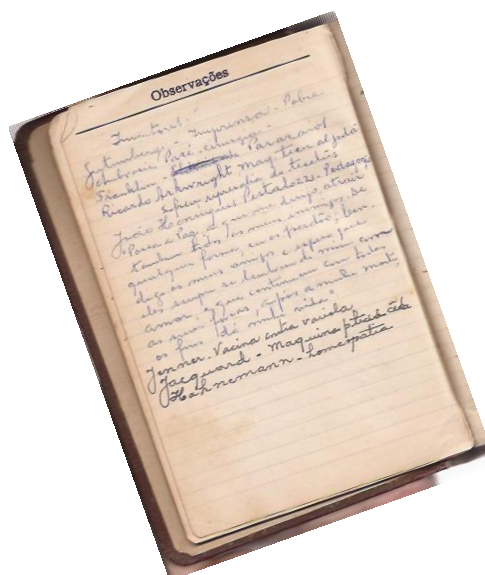 Observações
Inventori.
Gutemberg - Imprensa - Pobre
Ambroise Paré - cirurgia -
Franklin Pararaios
Ricardo Arkwright maq. tecer algodão
Sofreu represália de tecelões
João Henrique Pestalozzi - Pedagogo
Posso a Pag. a que me
também todos os meus amigos, se
qualquer forma, eu os perdôo, bem
diz os meus amigos e espero que
eles sempre se lembrem de mim com
amor, e que continuem em todas
as suas após a minha morte,
os fins de minha vida.
Jenner - Vacina contra variola
Jacquard - Maquina p. tecido sêda
Hahnemann - homeopatia